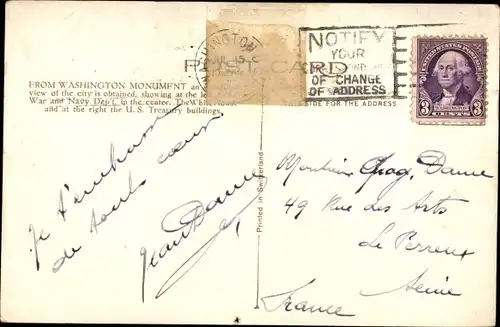 WASHINGTON
NOTIFY
YOUR
OF CHANGE
OF ADDRESS
UNITED STATES POSTAGE
WASHINGTON
3 3
CENTS
POST CARD
FROM WASHINGTON MONUMENT an
view of the city is obtained, showing at the le
War and Navy Dep't, in the center, The White House
and at the right the U.S. Treasury buildings.
SIDE FOR THE ADDRESS
Je t'embrasse
de tout cœur
Jean Dame
Printed in Switzerland
Monsieur Dame
49 Rue des Arts
Le Perreux
Seine
France